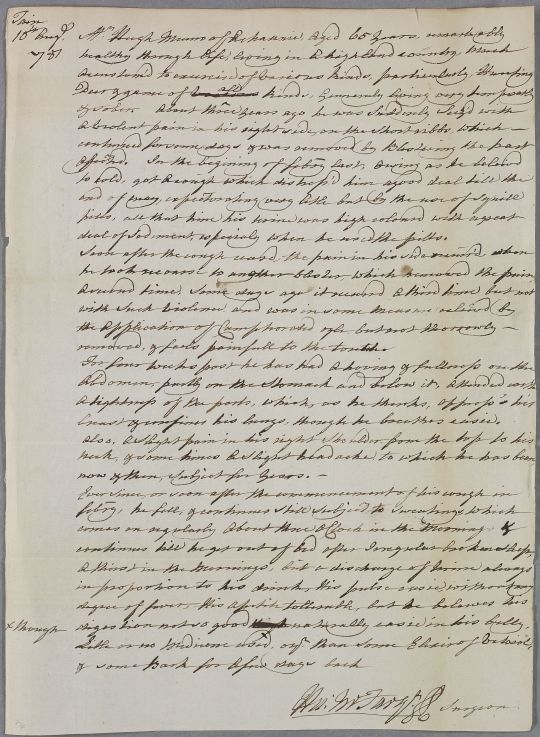 Tain
10th Augt.
1781
Mr. Hugh Munro of Achannie, Aged 65 Years, remarkably
healthy through life, living in a highland country, Much
accustomed to exercise of various kinds, particularly, Hunting
Deer & game of all kinds, Generally living very temperately
& sober. About three years ago he was Suddenly Seiz'd with
a violent pain in his right side, on the Short ribbs, which
continued for some days & was removed by Blistering the part
Affected. In the begining of febry last, owing as he believ'd
to cold, got a cough which distress'd him a good deal till the
end of May, expectorating very little but by the use of Squill
pills, all that time his Urine was high colour'd with a great
deal of Sediment, especially when he used the pills.
Soon after the cough ceas'd the pain in his side return'd when
he took recourse to another blister, which removed the pain
a second time, Some days ago it return'd a third time but not
with Such Violence and was in some measure relieved by
the Application of Camphorated oyle but not thoroughly
removed, & feels painfull to the touch.
For four weeks past he has had a swelling & fullness on the
Abdomen, partly on the Stomach and below it, attended with
a tightness of the parts, which, as he thinks, oppress's his
breast & confines his lungs, though he breathes easie.
Also, a Slight pain in his right Shoulder from the top to his
neck, & some times a Slight headache, to which he has been
now & then, Subject for Years.
Ever Since or soon after the commencement of his cough in
febry, he fell, & continues still Subject to Sweating, which
comes on regularly About three a Clock in the Morning &
continues till he get out of bed after Irregular broken Sleep,
a thirst in the Mornings, but a discharge of Urine always
in proportion to his drink, His pulse easie without any
degree of fever, His Apetite tollerable, but he believes his
digestion not so good × naturally easie in his belly.
× though
Little or no Medicine used, only than some Elixir of Vitriol,
& some Bark for a few days back
Surgeon